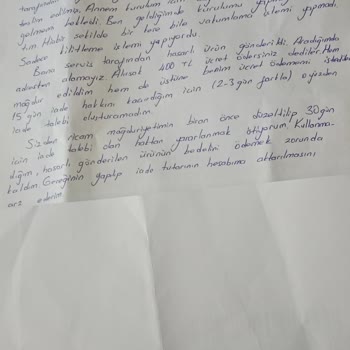 tarafından
teslim edilmiş. Annem kurulum için
gelmem bekledi. Ben geldiğimde kurulumu
tım. Hiçbir şekilde bir kere bile yıkama işlemi yapmadı.
Sadece titretme işlemi yapıyordu.
Bana servis tarafından hasarlı ürün gönderildi. Aradığımda
adresten alamayız. Ancak 400 TL ücret ödersiniz dediler. Hem
mağdur edildim hem de üstüne benim ücret ödememi
15 gün iade hakkını kaçırdığım için (2-3 gün farkla) e
iade talebi oluşturamadım.
Sizden ricam mağduriyetimin biran önce düzeltilip 30 gün
için iade talebi dan haktan yararlanmak istiyorum. Kullanma-
dığım, hasarlı gönderilen ürünün bedelini ödemek zorunda
kaldım. Gereğinin yapılıp iade tutarının hesabıma aktarılmasını,
arz ederim